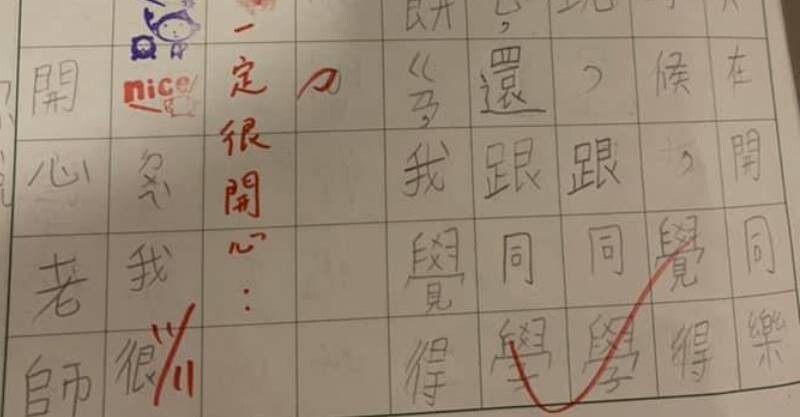 在開同樂
候，覺得
，跟同學
，還跟同學
餅ㄍㄢ，我覺得
一定很開心：
nice
我很
開心老師